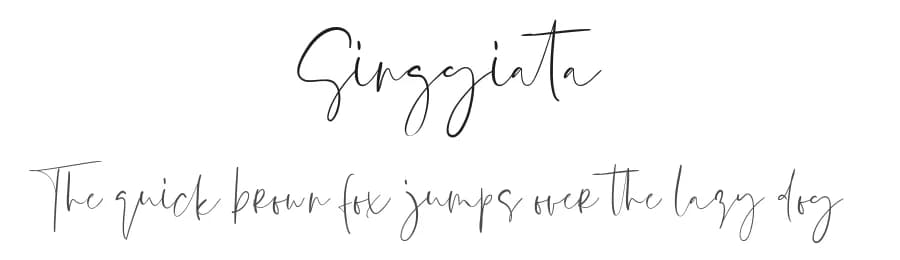 Singgiata
The quick brown fox jumps over the lazy dog